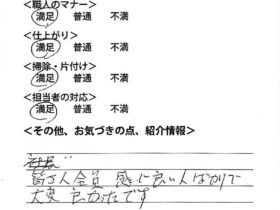 <職人のマナー>
満足 普通 不満
<仕上がり>
満足 普通 不満
<掃除・片付け>
満足 普通 不満
<担当者の対応>
満足 普通 不満
<その他、お気づきの点、紹介情報>
皆さん全員 感じ良い人ばかりで
大変 良かったです